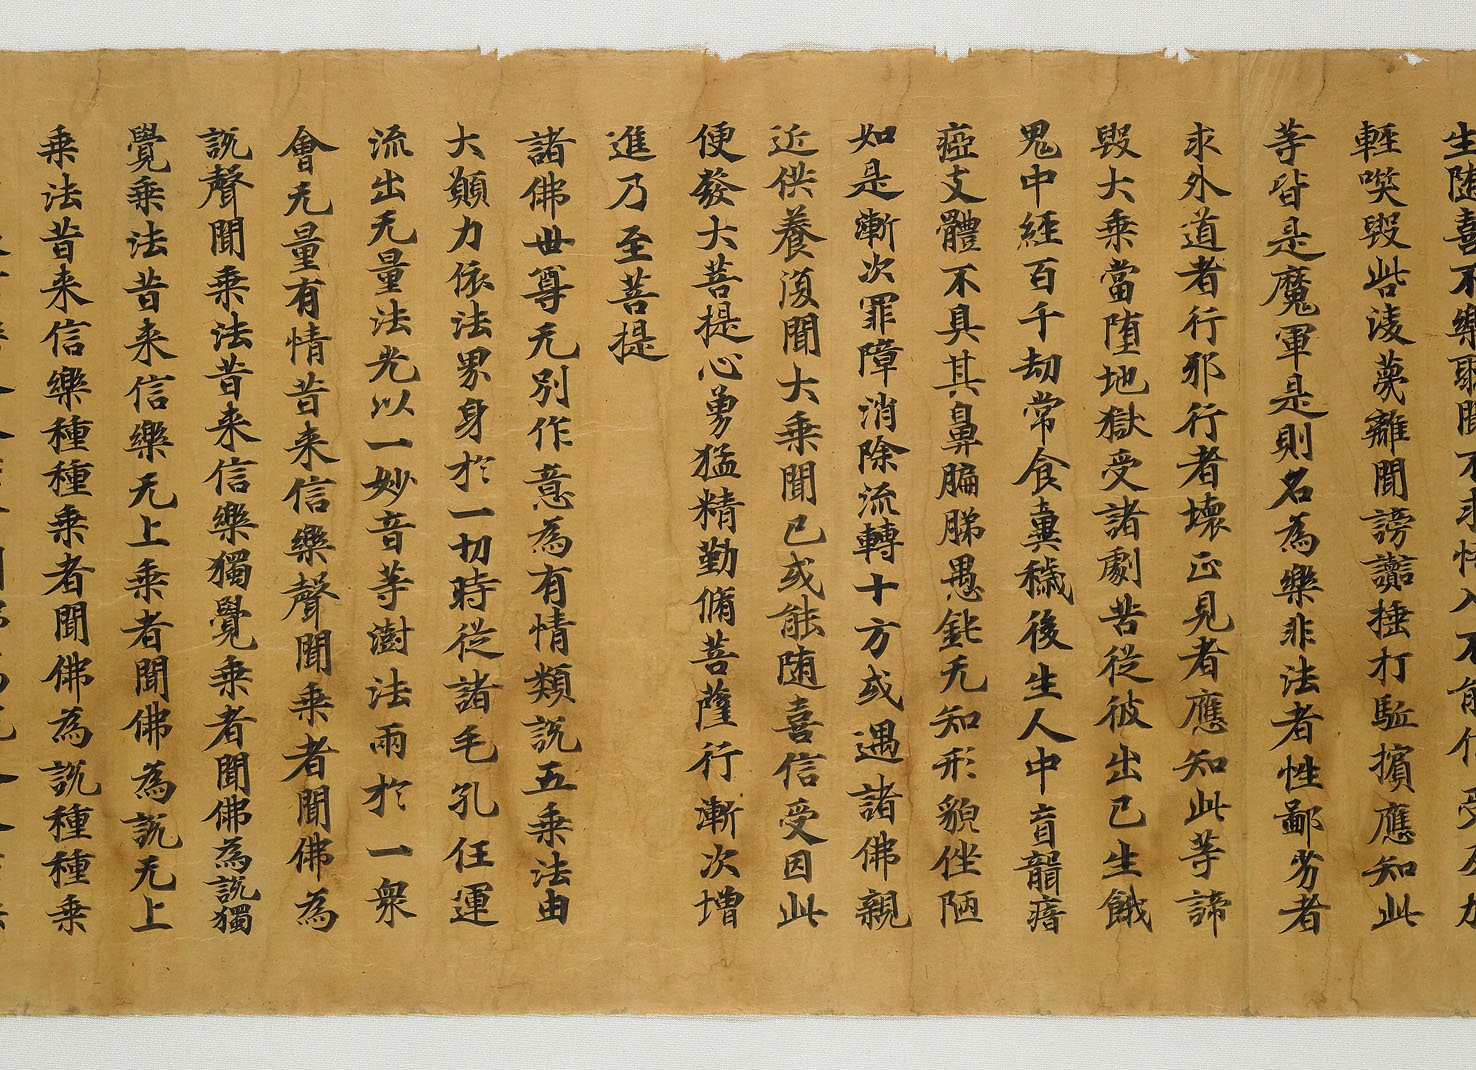 生随喜不樂聽聞不求悟入不能信受反加
輕唉毀呰淩蔑離間謗讟捶打駈擯應知此
等皆是魔軍是則名為樂非法者性鄙劣者
求外道者行邪行者壞正見者應知此等謗
毀大乘當墮地獄受諸劇苦從彼出已生餓
鬼中經百千劫常食糞穢後生人中盲聾瘖
瘂支體不具其鼻匾㔸愚鈍无知形貌矬陋
如是漸次罪障消除流轉十方或遇諸佛親
近供養復聞大乘聞已或能随喜信受因此
便發大菩提心勇猛精勤脩菩薩行漸次增
進乃至菩提
諸佛世尊无別作意為有情類說五乘法由
大願力依法界身於一切時從諸毛孔任運
流出无量法光以一妙音等澍法雨於一衆
會无量有情昔来信樂聲聞乘者聞佛為
說聲聞乘法昔来信樂獨覺乘者聞佛為說獨
覺乘法昔来信樂无上乘者聞佛為說无上
乘法昔来信樂種種乘者聞佛為說種種乘